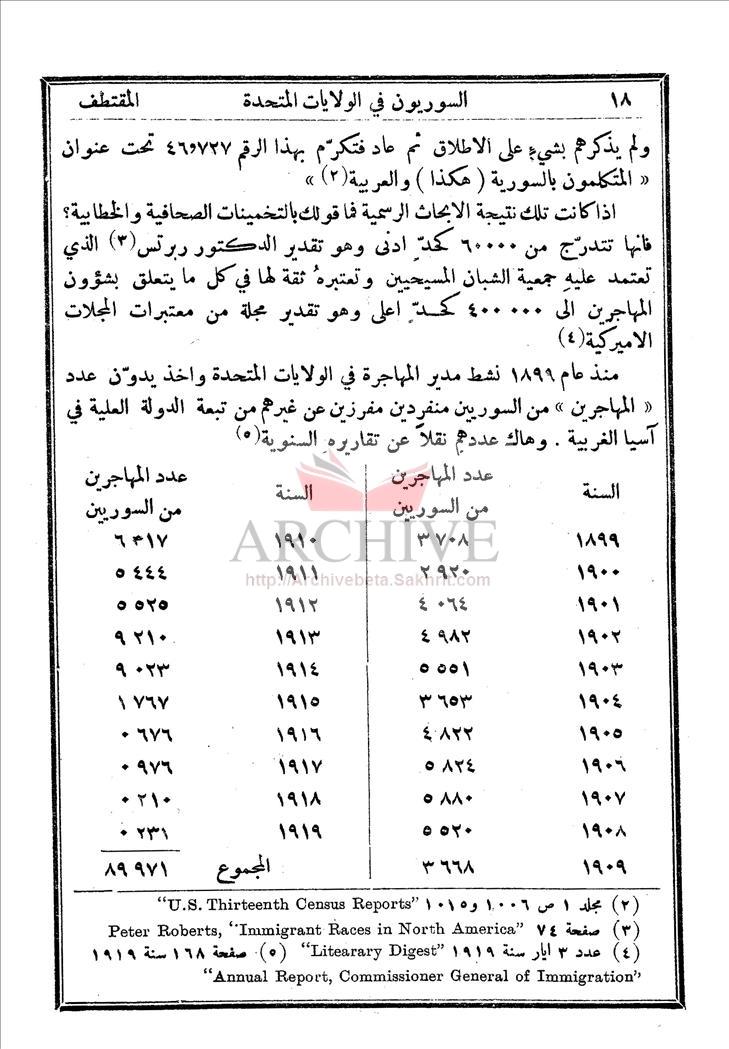 ١٨ السوريون في الولايات المتحدة المقتطف
ولم يذكرهم بشيءٍ على الاطلاق ثم عاد فتكرّم بهذا الرقم ٤٦٬٧٢٧ تحت عنوان
« المتكلمون بالسورية ( هكذا ) والعربية(٢) »
اذا كانت تلك نتيجة الابحاث الرسمية فما قولك بالتخمينات الصحافية والخطابية ؟
فانها تتدرّج من ٦٠٠٠٠ كحدّ ادنى وهو تقدير الدكتور ربرتس(٣) الذي
تعتمد عليهِ جمعية الشبان المسيحيين وتعتبرهُ ثقة لها في كل ما يتعلق بشؤون
المهاجرين الى ٤٠٠ ٠٠٠ كحـدّ اعلى وهو تقدير مجلة من معتبرات المجلات
الاميركية(٤)
منذ عام ١٨٩٩ نشط مدير المهاجرة في الولايات المتحدة واخذ يدوّن عدد
« المهاجرين » من السوريين منفردين مفرزين عن غيرهم من تبعة الدولة العلية في
آسيا الغربية . وهاك عددهم نقلاً عن تقاريره السنوية(٥)
السنة عدد المهاجرين السنة عدد المهاجرين
من السوريين من السوريين
١٨٩٩ ٣ ٧٠٨ ١٩١٠ ٦ ٣١٧
١٩٠٠ ٢ ٩٢٠ ١٩١١ ٥ ٤٤٤
١٩٠١ ٤ ٠٦٤ ١٩١٢ ٥ ٥٢٥
١٩٠٢ ٤ ٩٨٢ ١٩١٣ ٩ ٢١٠
١٩٠٣ ٥ ٥٥١ ١٩١٤ ٩ ٠٢٣
١٩٠٤ ٣ ٦٥٣ ١٩١٥ ١ ٧٦٧
١٩٠٥ ٤ ٨٢٢ ١٩١٦ ٠ ٦٧٦
١٩٠٦ ٥ ٨٢٤ ١٩١٧ ٠ ٩٧٦
١٩٠٧ ٥ ٨٨٠ ١٩١٨ ٠ ٢١٠
١٩٠٨ ٥ ٥٢٠ ١٩١٩ ٠ ٢٣١
١٩٠٩ ٣ ٦٦٨ المجموع ٨٩ ٩٧١
ARCHIVE
http://Archivebeta.Sakhrit.com
(٢) مجلد ١ ص ١٠٠٦ و١٠١٥ "U.S. Thirteenth Census Reports"
(٣) صفحة ٧٤ Peter Roberts, "Immigrant Races in North America"
(٤) عدد ٣ ايار سنة ١٩١٩ "Litearary Digest" (٥) صفحة ١٦٨ سنة ١٩١٩
"Annual Report, Commissioner General of Immigration"